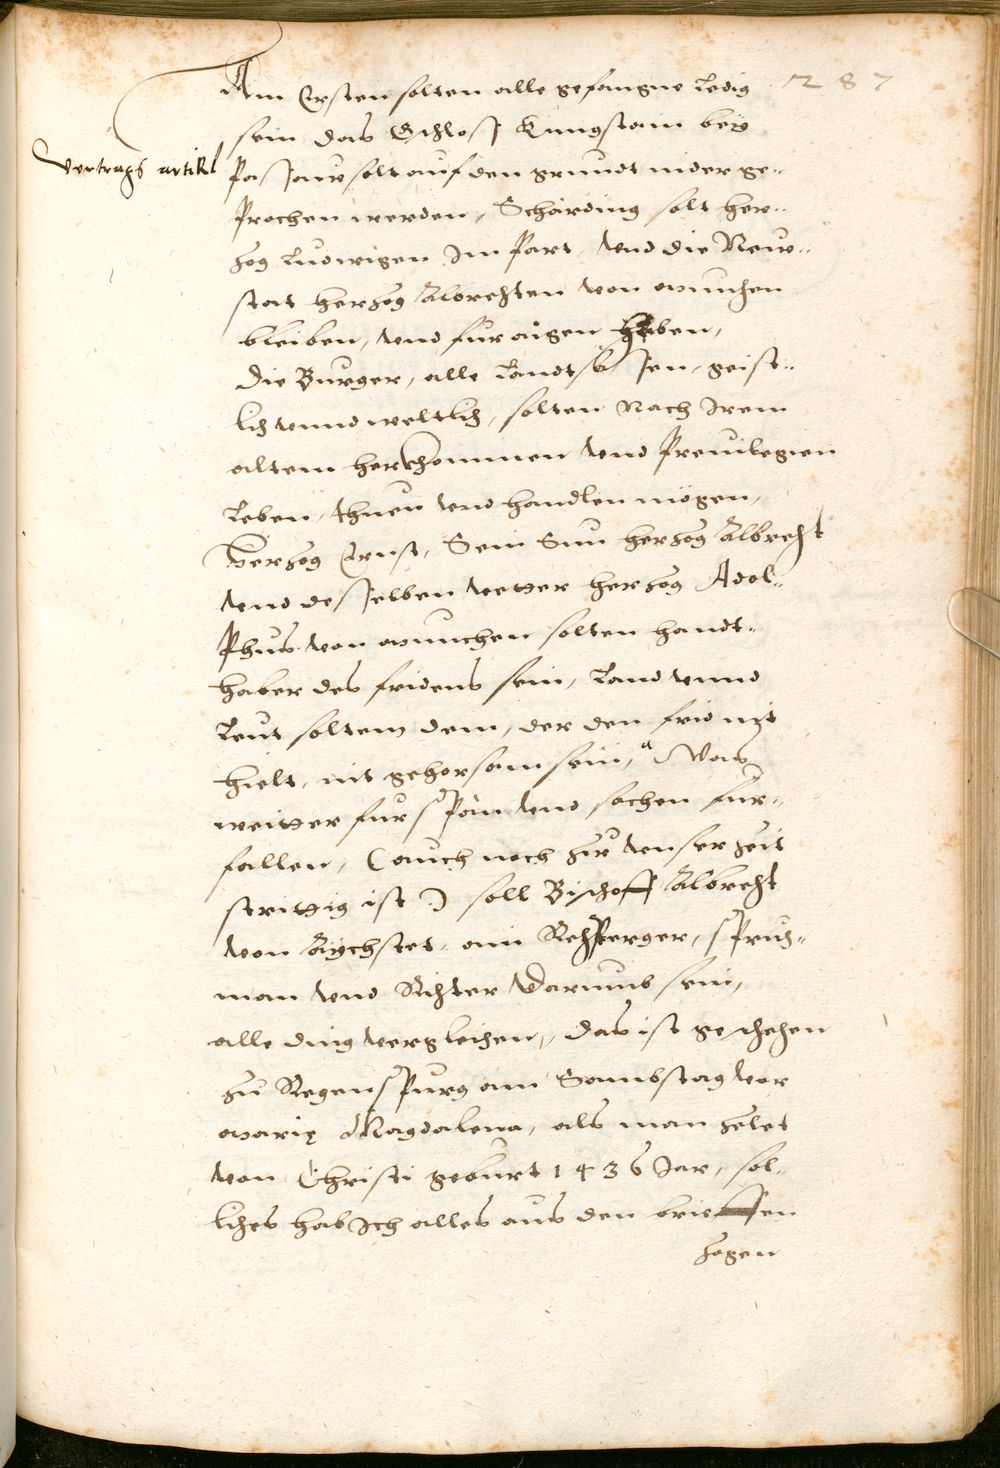 287
Am Ersten solten alle gefangne Ledig
sein das Schloss Kungstain bey
Vertrags artikl
Passaw solt auf den grundt nider ge-
Prochen werden, Schärding solt her-
zog Ludwigen Im Part, Vnd die New-
stat herzog Albrechten von munchen
bleiben, vnd fur aigen haben,
Die Burger, alle Landtsässen, geist-
lich vnnd weltlich, solten Nach Irem
altem herkhommen vnd Preuilegien
Leben, thuen vnd handlen mögen,
Herzog Ernst, Sein Sun herzog Albrecht
vnd desselben vetter herzog Adol-
Phus von munchen solten handt-
haber des fridens sein, Land vnnd
Leut solten dem, der den frid nit
hielt, nit gehorsam sein, Was
weitter fur sPän vnd sachen fur-
fallen, (auch noch zu vnser zeit
strittig ist) soll Bischoff Albrecht
von Aychstet, ain RehPerger, sPruch-
man vnd Richter darumb sein,
alle ding vergleichen, das ist geschehen
zu RegensPurg am Sambstag vor
marię Magdalena, als man zelet
von Christi geburt 1436 Jar, sol-
liches hab Ich alles aus den brieffen
zogen